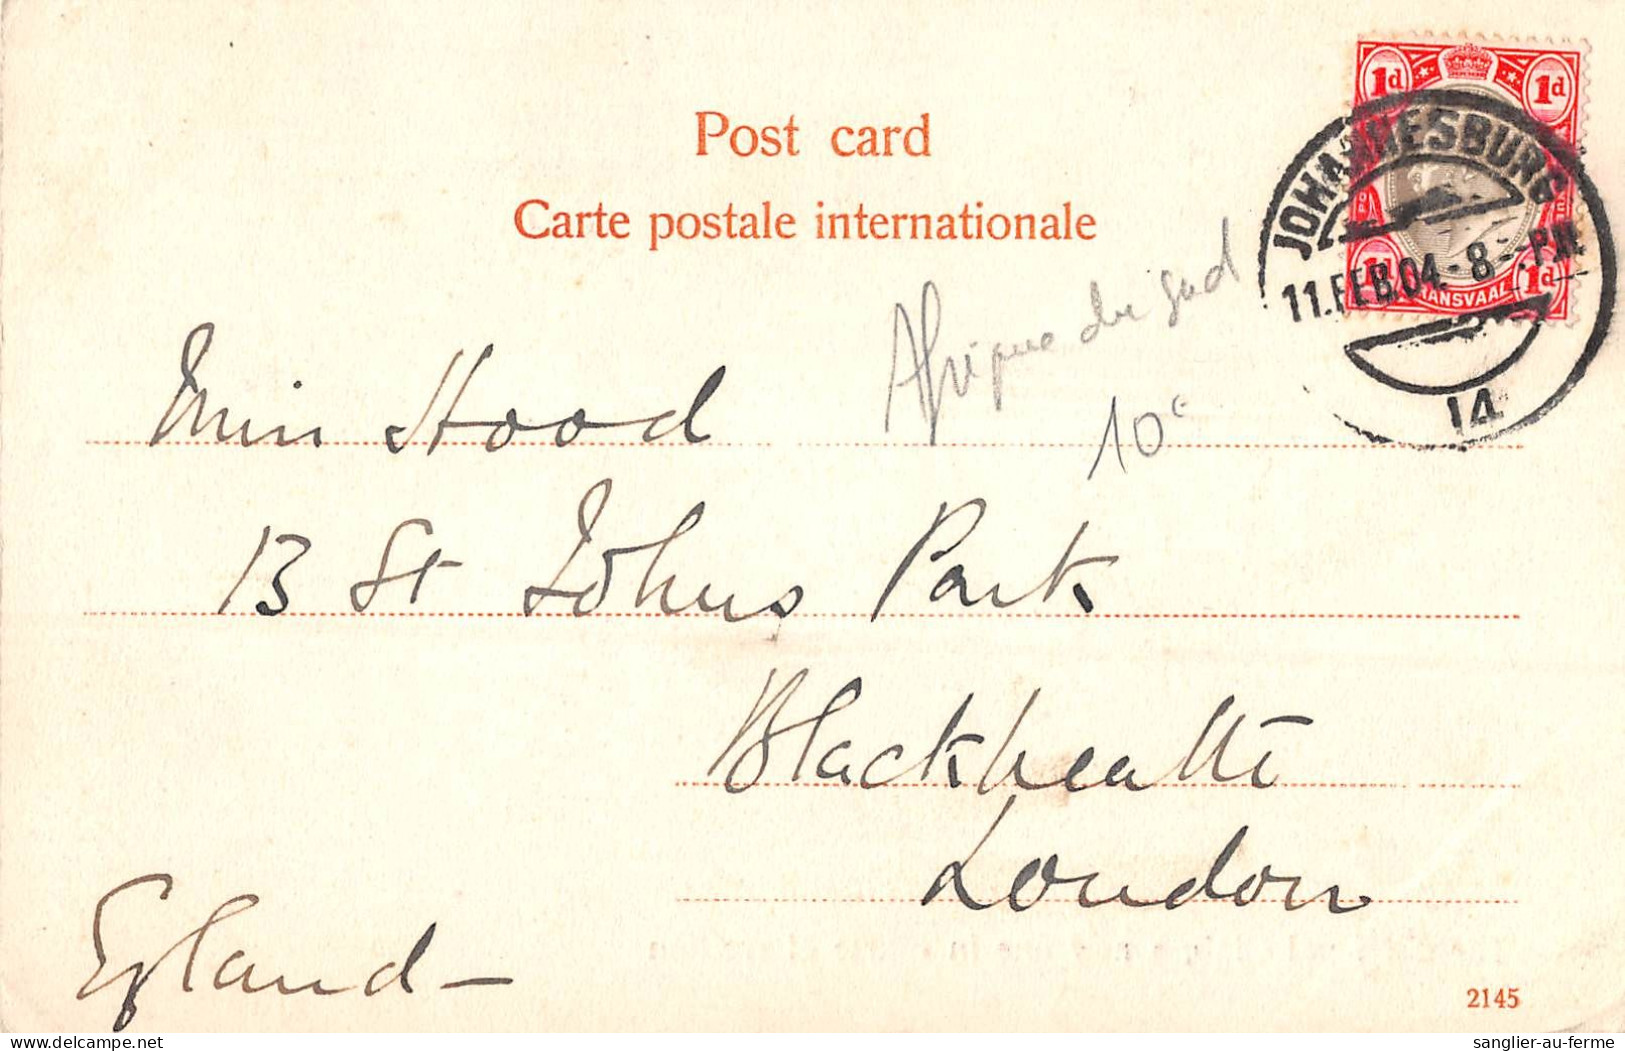 Post card
Carte postale internationale
1d 1d
JOHANNESBURG
11.FEB.04.-8-.P.M.
1d TRANSVAAL 1d
14
Afrique du Sud
10c
Miss Hood
13 St Johns Park
Blackheath
London
England -
2145
delcampe.net
sanglier-au-ferme